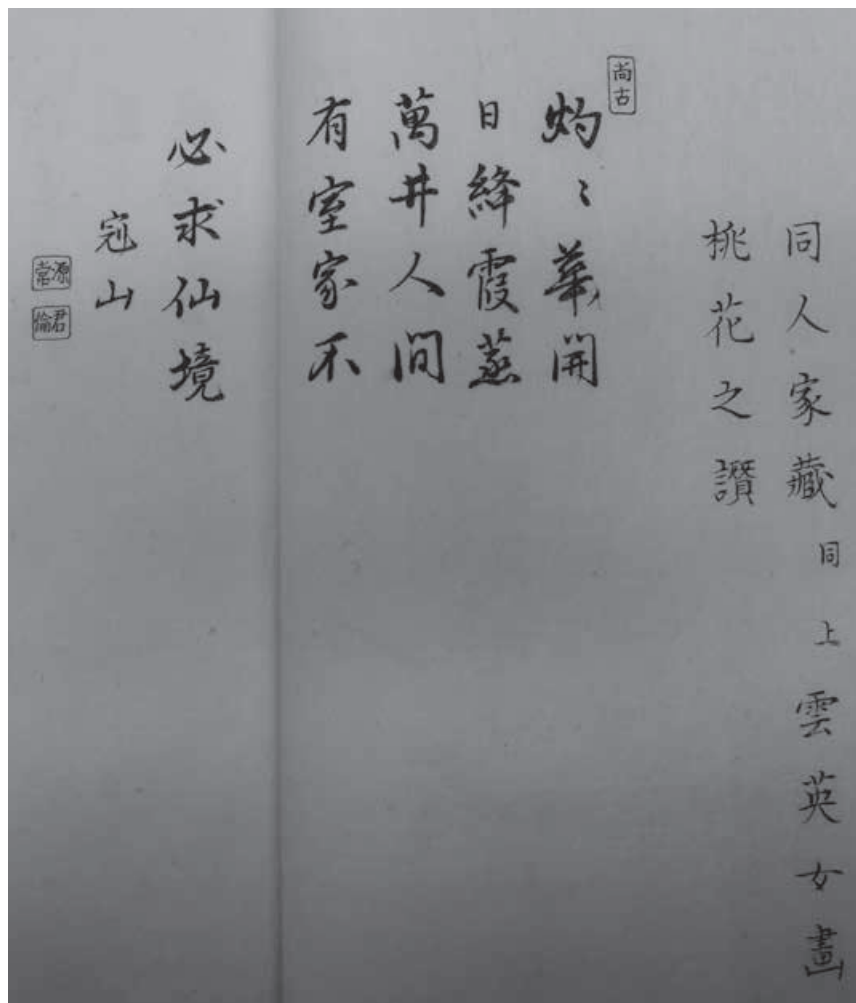 同人家藏同上雲英女畫
桃花之讚
尚古
灼〻華開
日絳霞蒸
萬井人間
有室家不
必求仙境
冠山
源君
常倫